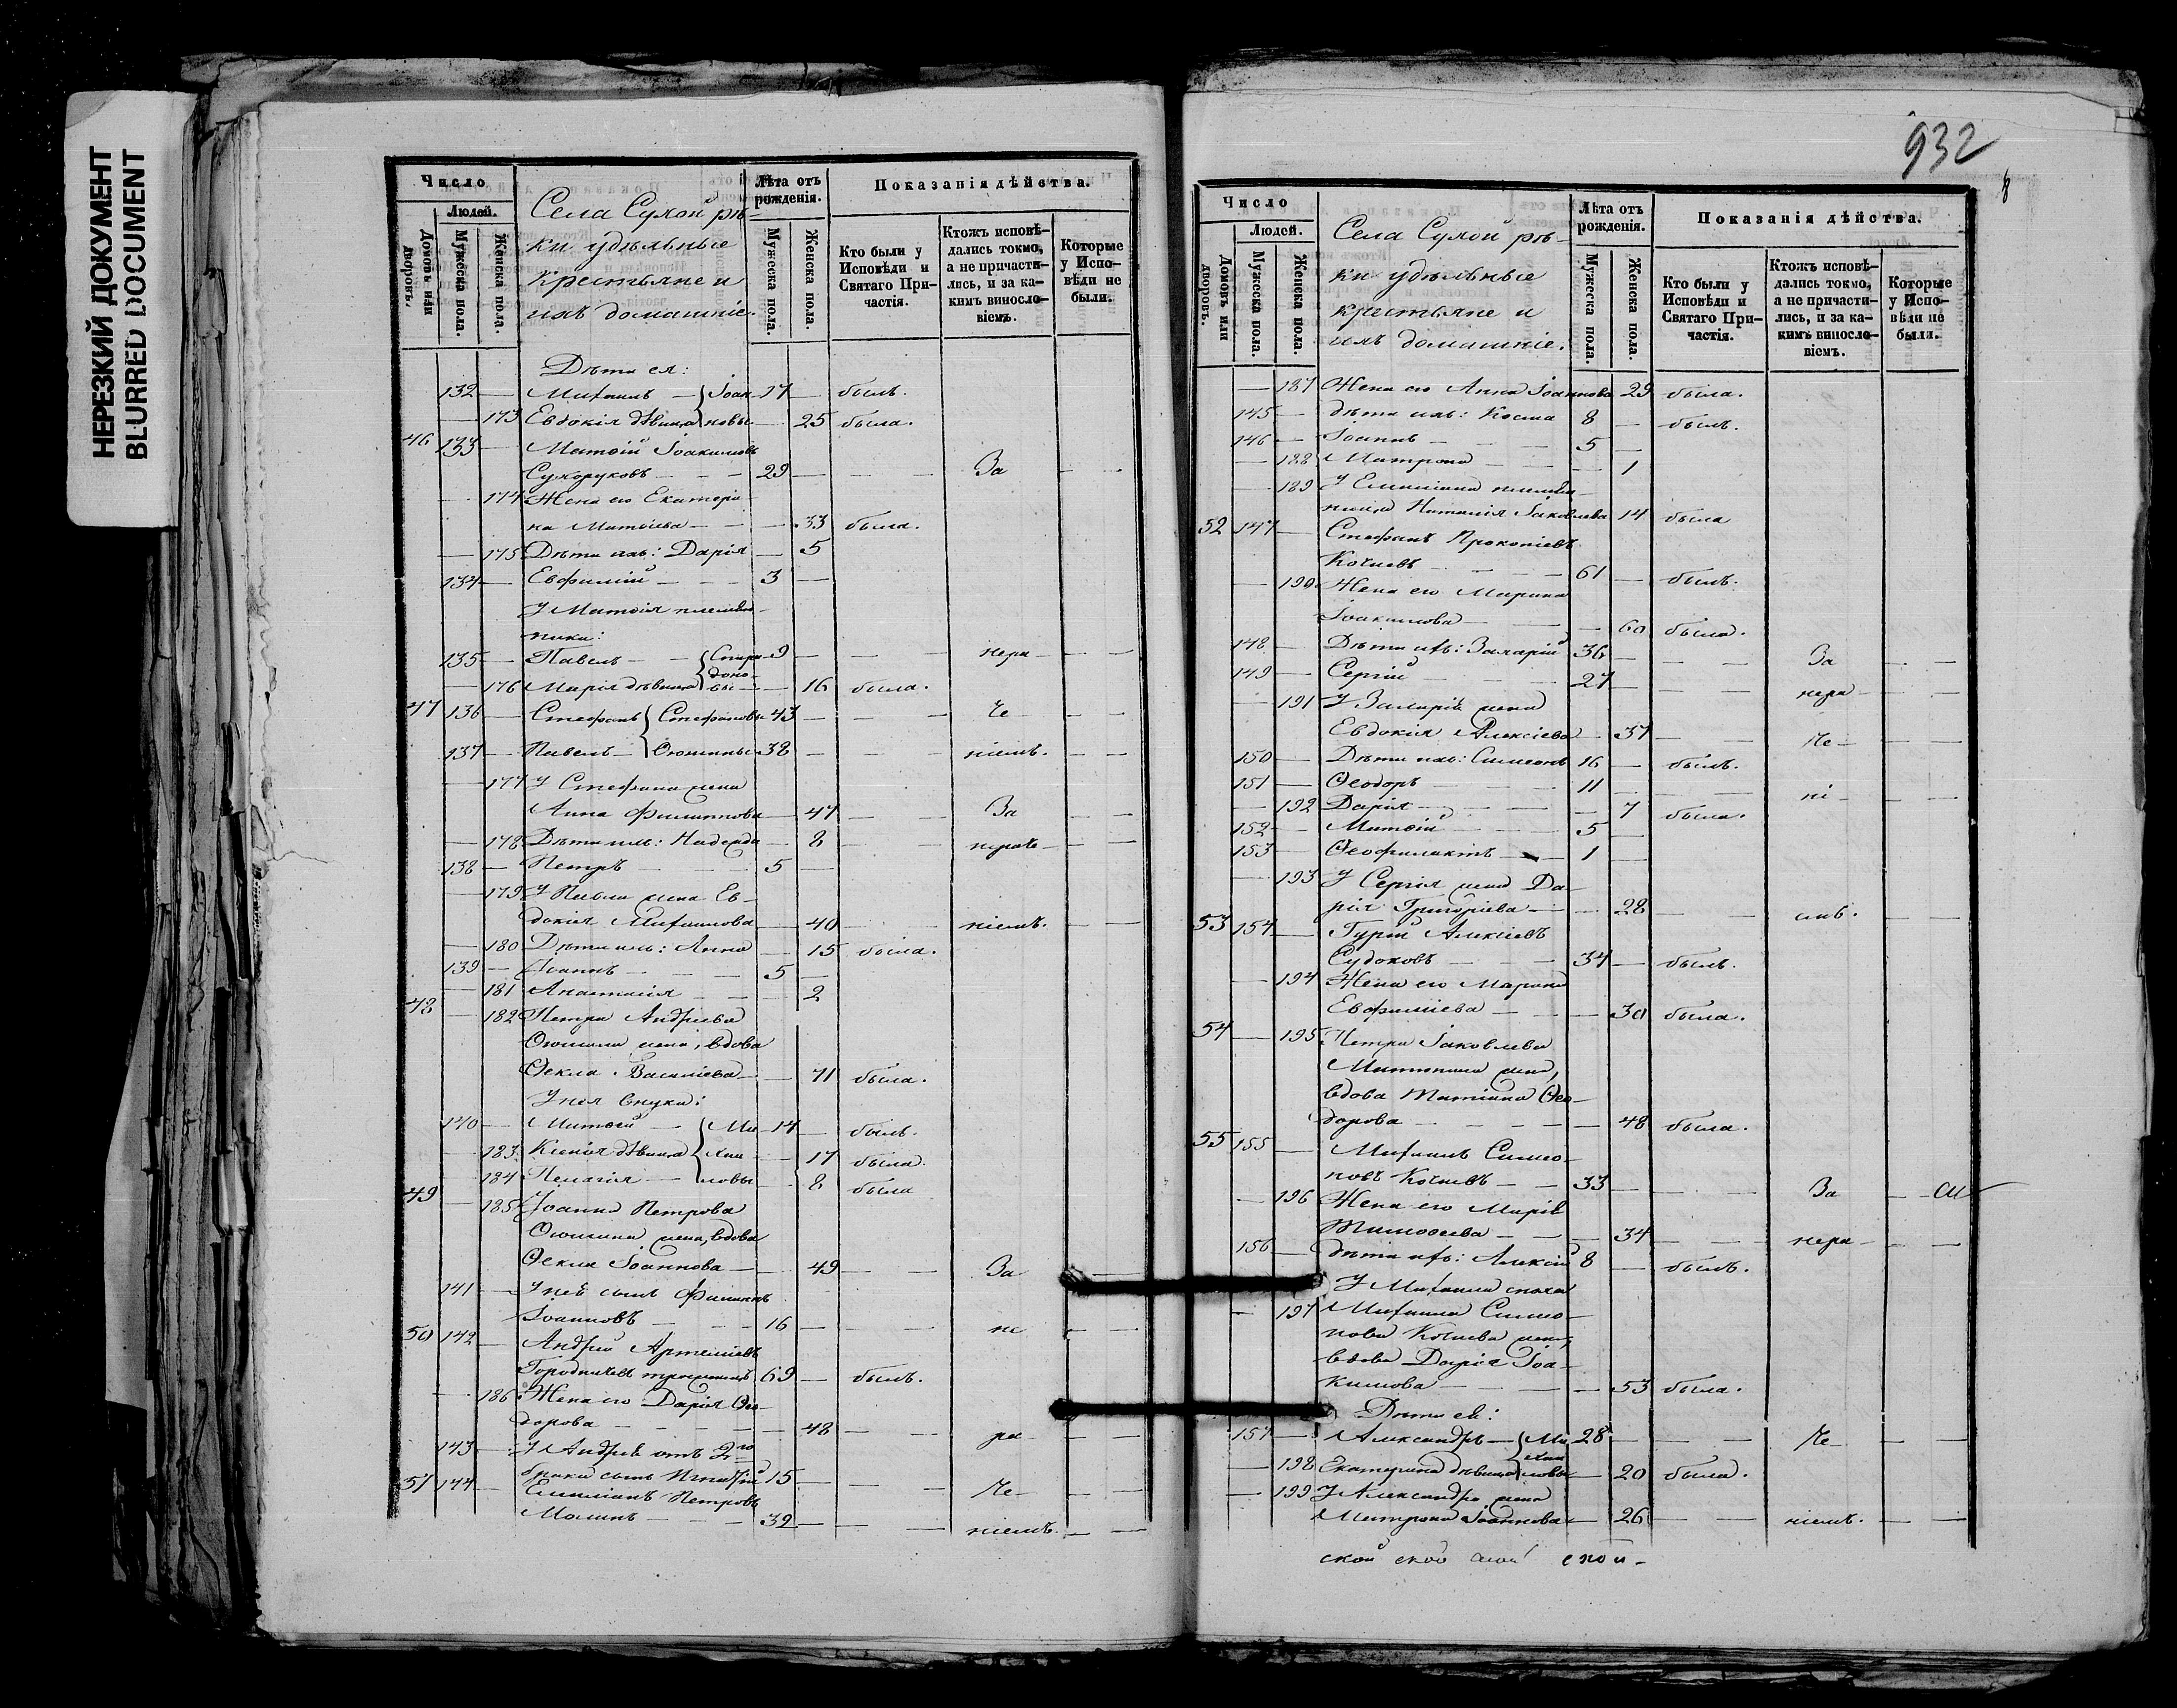 НЕРЕЗКИЙ ДОКУМЕНТ
BLURRED DOCUMENT
Число
Людей.
Домовъ или дворовъ.
Мужеска пола.
Женска пола.
Села Сухой рѣ-
ки удѣльные
крестьяне и
ихъ домашніе.
Лѣта отъ рожденія.
Мужеска пола.
Женска пола.
Показанія дѣйства.
Кто были у Исповѣди и Святаго При-частія.
Ктожъ исповѣ-дались токмо, а не причасти-лись, и за ка-кимъ виносло-віемъ.
Которые у Испо-вѣди не были.
Дѣти ея:
132 — Михаилъ — Іоаки 17 — былъ.
— 173 Евдокія дѣвица новы — 25 была.
46 133 — Матѳій Іоакимовъ
Сухоруковъ — — 29 — — — За — —
— 174 Жена его Екатери-
на Матѳіева — — — 33 была.
— 175 Дѣти ихъ: Дарія — 5
134 — Евфимій — — 3 —
У Матѳія племян-
ники:
135 — Павелъ — Спири 9 — — — нера — — —
доно-
— 176 Марія дѣвица вы — — 16 была.
47 136 — Стефанъ Стефановы 43 — — — Че — —
137 — Павелъ — Ѳомины 38 — — — ніемъ. — —
— 177 У Стефана жена
Анна Филиппова — 47 — — За — —
— 178 Дѣти ихъ: Надежда — 8 — — нераче — — —
138 — Петръ — — — 5 —
— 179 У Павла жена Ев-
докія Михаилова — 40 — — ніемъ. — —
— 180 Дѣти ихъ: Анна — 15 была.
139 — Іоаннъ — — — 5 —
— 181 Анастасія — — — 2
48 — 182 Петра Андреева
Ѳомина жена, вдова
Ѳекла Василіева — — 71 была.
У нея внуки:
140 — Матѳій — Ми 14 — былъ.
— 183 Ксенія дѣвица хаи — 17 была.
— 184 Пелагія — ловы — 8 была
49 — 185 Іоанна Петрова
Ѳомина жена, вдова
Ѳекла Іоаннова — — 49 — — За —
141 — У неё сынъ Филиппъ
Іоанновъ — — — 16 — — — не — —
50 142 — Андрей Артеміевъ
Городничевъ 69 — былъ.
— 186 Жена его Дарія Ѳео-
дорова — — — — 48 — — ра — —
143 — У Андрея отъ 2го
брака сынъ Игнатій 15 — — — Че — — —
51 144 — Емиліанъ Петровъ
— — — 32 — — — ніемъ. — —
932
Число
Людей.
Домовъ или дворовъ.
Мужеска пола.
Женска пола.
Села Сухой рѣ-
ки удѣльные
крестьяне и
ихъ домашніе.
Лѣта отъ рожденія.
Мужеска пола.
Женска пола.
Показанія дѣйства.
Кто были у Исповѣди и Святаго При-частія.
Ктожъ исповѣ-дались токмо, а не причасти-лись, и за ка-кимъ виносло-віемъ.
Которые у Испо-вѣди не были.
— 187 Жена его Анна Іоаннова 29 была.
145 — дѣти ихъ: Косма 8 — былъ.
146 — Іоаннъ — — — 5 —
— 188 Матрона — — — — 1
— 189 У Емиліана племян-
ница Наталія Іаковлева 14 была
52 147 — Стефанъ Прокопіевъ
Кочневъ — — — — 61 — былъ.
— 190 Жена его Марина
Іоакимова — — — 60 была.
148 — Дѣти ихъ: Захарій 36 — — — За — —
149 — Сергій — — — 27 — — — нера — — —
— 191 У Захаріи жена
Евдокія Алексіева — 37 — — Че — — —
150 — Дѣти ихъ: Симеонъ 16 — былъ.
151 — Ѳеодоръ — — — 11 — — — ні — — —
— 192 Дарія — — — — — 7 была.
152 — Матѳій — — — 5 —
153 — Ѳеофилактъ — — 1 —
— 193 У Сергія жена Да-
рія Григоріева — — 28 — — емъ. — —
53 154 — Гурій Алексіевъ
Судоковъ — — — 34 — былъ.
— 194 Жена его Марина
Евфиміева — — — 30 была.
54 — 195 Петра Іаковлева
жена,
вдова Татіана Ѳео-
дорова — — — — — 48 была.
55 155 — Михаилъ Симео-
новъ Кочневъ — — 33 — — — За — —
— 196 Жена его Марія
Тимоѳеева — — — 34 — — нера — — —
156 — дѣти ихъ: Алексій 8 — былъ.
У Михаила сноха
— 197 Михаила Симео-
нова Кочнева жена,
вдова Дарія Іоа-
кимова — — — — 53 была.
Дѣти её:
157 — Александръ — Ми 28 — — — Че — — —
хаи
— 198 Екатерина дѣвица ловы — 20 была.
— 199 У Александра жена
Матрона Іоаннова — 26 — — ніемъ. — —
ской ской ской ской —